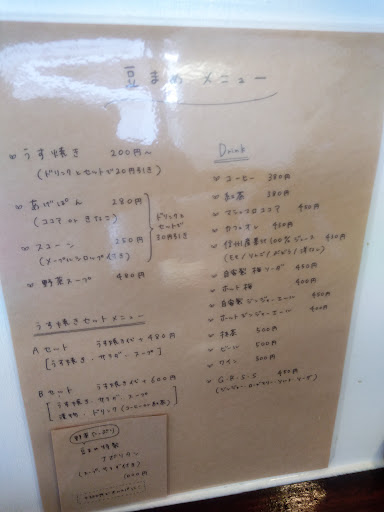 豆まめ メニュー
うす焼き 200円〜
(ドリンクとセットで20円引き)
あげぱん 280円
(ココア or きなこ)
スコーン 250円
(メープルシロップ付き)
ドリンクと
セットで
30円引き
野菜スープ 480円
うす焼きセットメニュー
Aセット うす焼き代 + 480円
[うす焼き・サラダ・スープ]
Bセット うす焼き代 + 600円
[うす焼き・サラダ・スープ
漬物・ドリンク(コーヒー or 紅茶)]
野菜たっぷり
豆まめ特製
ナポリタン
(スープ・サラダ付き)
1000円
Drink
コーヒー 380円
紅茶 380円
マシュマロココア 450円
カフェオレ 450円
信州産果汁100%ジュース 450円
(もも/りんご/ぶどう/洋なし)
自家製 梅ソーダ 450円
ホット梅 400円
自家製ジンジャーエール 450円
ホットジンジャーエール 400円
抹茶 500円
ビール 500円
ワイン 500円
G・R・S・S 450円
(ジンジャー・ローズマリー・ソルト・ソーダ)